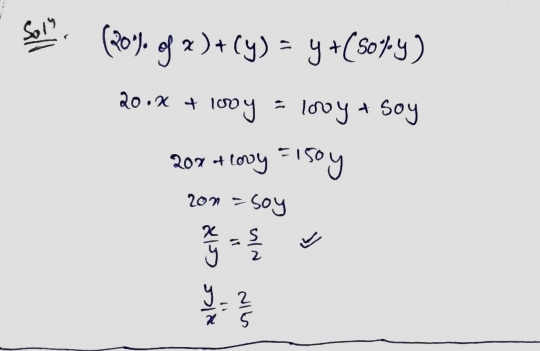 Solⁿ. (20% of x) + (y) = y + (50% y)
20·x + 100y = 100y + 50y
20x + 100y = 150y
20x = 50y
x/y = 5/2 ✓
y/x = 2/5